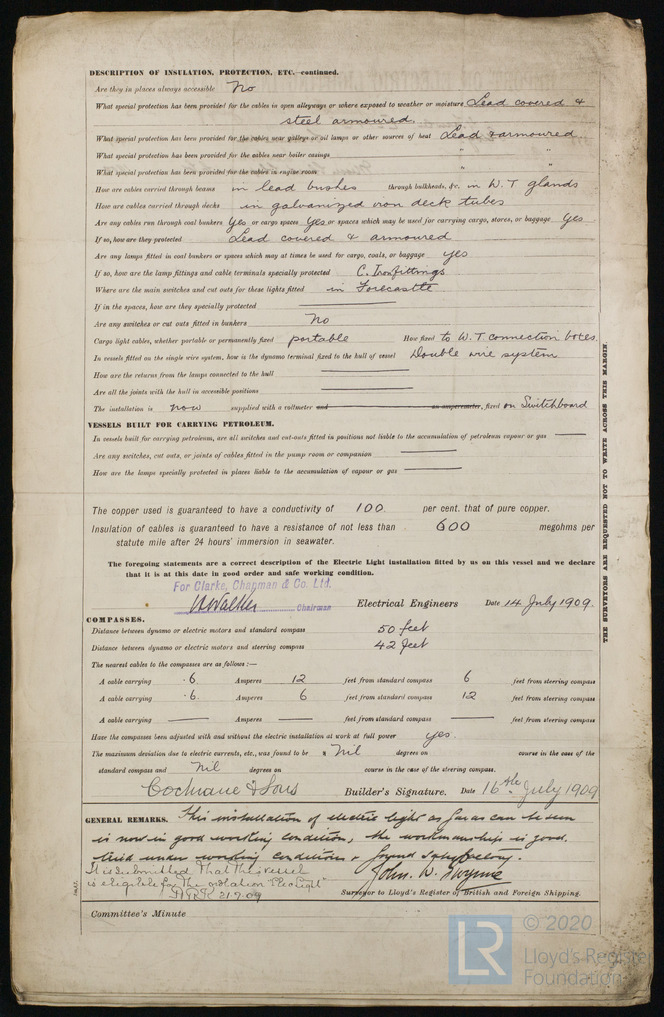 DESCRIPTION OF INSULATION, PROTECTION, ETC.—continued.
Are they in places always accessible No
What special protection has been provided for the cables in open alleyways or where exposed to weather or moisture Lead covered &
steel armoured.
What special protection has been provided for the cables near galleys or oil lamps or other sources of heat Lead & armoured
What special protection has been provided for the cables near boiler casings " "
What special protection has been provided for the cables in engine room " "
How are cables carried through beams in lead bushes through bulkheads, &c. in W.T glands
How are cables carried through decks in galvanized iron deck tubes
Are any cables run through coal bunkers Yes or cargo spaces Yes or spaces which may be used for carrying cargo, stores, or baggage Yes
If so, how are they protected Lead covered & armoured
Are any lamps fitted in coal bunkers or spaces which may at times be used for cargo, coals, or baggage Yes
If so, how are the lamp fittings and cable terminals specially protected C. Iron fittings
Where are the main switches and cut outs for these lights fitted in Forecastle
If in the spaces, how are they specially protected
Are any switches or cut outs fitted in bunkers No
Cargo light cables, whether portable or permanently fixed portable How fixed to W.T connection boxes.
In vessels fitted on the single wire system, how is the dynamo terminal fixed to the hull of vessel Double wire system
How are the returns from the lamps connected to the hull
Are all the joints with the hull in accessible positions
The installation is now supplied with a voltmeter and an amperemeter, fixed on Switchboard
VESSELS BUILT FOR CARRYING PETROLEUM.
In vessels built for carrying petroleum, are all switches and cut-outs fitted in positions not liable to the accumulation of petroleum vapour or gas
Are any switches, cut outs, or joints of cables fitted in the pump room or companion
How are the lamps specially protected in places liable to the accumulation of vapour or gas
The copper used is guaranteed to have a conductivity of 100 per cent. that of pure copper.
Insulation of cables is guaranteed to have a resistance of not less than 600 megohms per
statute mile after 24 hours' immersion in seawater.
The foregoing statements are a correct description of the Electric Light installation fitted by us on this vessel and we declare
that it is at this date in good order and safe working condition.
For Clarke, Chapman & Co. Ltd.
Walker Chairman Electrical Engineers Date 14 July 1909.
COMPASSES.
Distance between dynamo or electric motors and standard compass 50 feet
Distance between dynamo or electric motors and steering compass 42 feet
The nearest cables to the compasses are as follows:—
A cable carrying .6 Amperes 12 feet from standard compass 6 feet from steering compass
A cable carrying .6 Amperes 6 feet from standard compass 12 feet from steering compass
A cable carrying Amperes feet from standard compass feet from steering compass
Have the compasses been adjusted with and without the electric installation at work at full power yes.
The maximum deviation due to electric currents, etc., was found to be Nil degrees on course in the case of the
standard compass and Nil degrees on course in the case of the steering compass.
Cochrane & Sons Builder's Signature. Date 16th July 1909
GENERAL REMARKS. This installation of electric light as far as can be seen
is now in good working condition, the workmanship is good.
tried under working conditions & found satisfactory.
It is submitted that this vessel
is eligible for the notation "Elec Light"
21.7.09
John. W.
Surveyor to Lloyd's Register of British and Foreign Shipping.
Committee's Minute
THE SURVEYORS ARE REQUESTED NOT TO WRITE ACROSS THIS MARGIN.
LR
© 2020
Lloyd's Register
Foundation